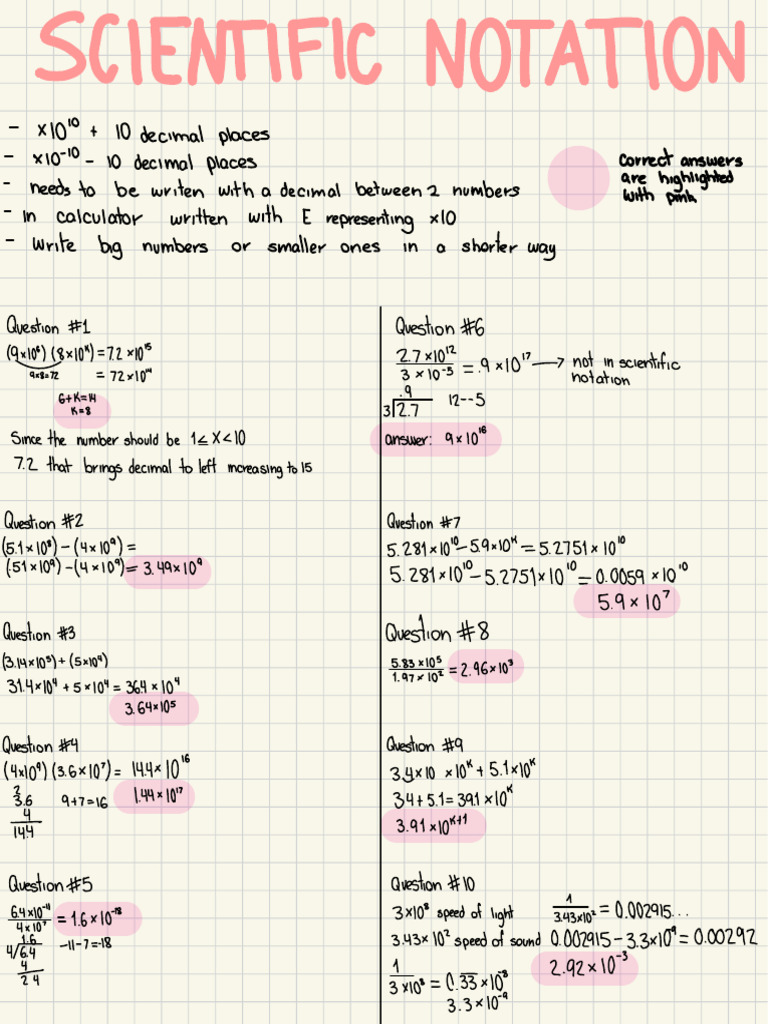 SCIENTIFIC NOTATION
- ×10¹⁰ + 10 decimal places
- ×10⁻¹⁰ - 10 decimal places
- needs to be writen with a decimal between 2 numbers
- in calculator written with E representing ×10
- Write big numbers or smaller ones in a shorter way
correct answers
are highlighted
with pink
Question #1
(9×10⁶) (8×10ᴷ) = 7.2 ×10¹⁵
9×8=72
= 72×10¹⁴
6+K=14
K=8
Since the number should be 1≤X<10
7.2 that brings decimal to left increasing to 15
Question #2
(5.1×10⁸) – (4×10⁹) =
(.51×10⁹) – (4×10⁹) = 3.49×10⁹
Question #3
(3.14×10⁵) + (5×10⁴)
31.4×10⁴ + 5×10⁴ = 36.4 × 10⁴
3.64×10⁵
Question #4
(4×10⁹) (3.6×10⁷) = 14.4×10¹⁶
1.44×10¹⁷
2
3.6
4
14.4
9+7=16
Question #5
6.4×10⁻¹¹
4×10⁷
= 1.6×10⁻¹⁸
1.6
4/6.4
4
2 4
-11-7=-18
Question #6
2.7×10¹²
3 × 10⁻⁵
= .9×10¹⁷ → not in scientific
notation
.9
3 2.7
12--5
answer: 9×10¹⁶
Question #7
5.281×10¹⁰ – 5.9×10ᴷ = 5.2751×10¹⁰
5.281×10¹⁰ – 5.2751×10¹⁰ = 0.0059 ×10¹⁰
5.9× 10⁷
Question #8
5.83×10⁵
1.97×10²
= 2.96×10³
Question #9
3.4×10 ×10ᴷ + 5.1×10ᴷ
34+5.1=39.1×10ᴷ
3.91×10ᴷ⁺¹
Question #10
3×10⁸ speed of light
3.43×10² speed of sound
1
3×10⁸
= 0.33×10⁻⁸
3.3×10⁻⁹
1
3.43×10²
= 0.002915...
0.002915 – 3.3×10⁻⁹ = 0.00292
2.92×10⁻³